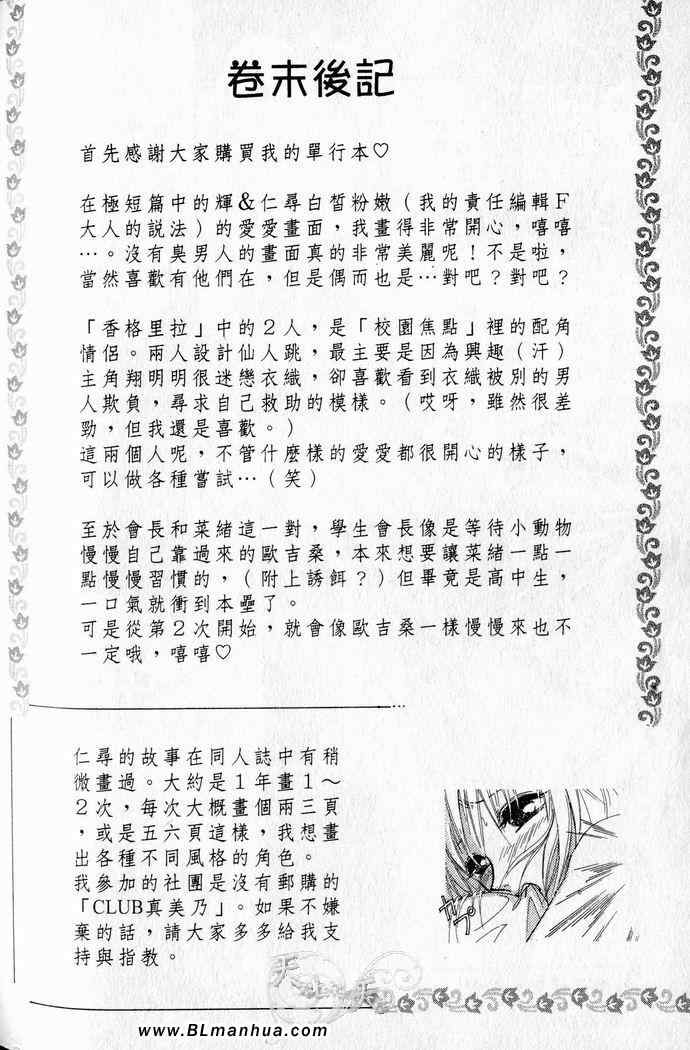 卷末後記
首先感謝大家購買我的單行本♡
在極短篇中的輝&仁尋白皙粉嫩(我的責任編輯F
大人的說法)的愛愛畫面,我畫得非常開心,嘻嘻
…。沒有臭男人的畫面真的非常美麗呢!不是啦,
當然喜歡有他們在,但是偶而也是…對吧?對吧?
「香格里拉」中的2人,是「校園焦點」裡的配角
情侶。兩人設計仙人跳,最主要是因為興趣(汗)
主角翔明明很迷戀衣織,卻喜歡看到衣織被別的男
人欺負,尋求自己救助的模樣。(哎呀,雖然很差
勁,但我還是喜歡。)
這兩個人呢,不管什麼樣的愛愛都很開心的樣子,
可以做各種嘗試…(笑)
至於會長和菜緒這一對,學生會長像是等待小動物
慢慢自己靠過來的歐吉桑,本來想要讓菜緒一點一
點慢慢習慣的,(附上誘餌?)但畢竟是高中生,
一口氣就衝到本壘了。
可是從第2次開始,就會像歐吉桑一樣慢慢來也不
一定哦,嘻嘻♡
仁尋的故事在同人誌中有稍
微畫過。大約是1年畫1~
2次,每次大概畫個兩三頁
,或是五六頁這樣,我想畫
出各種不同風格的角色。
我參加的社團是沒有郵購的
「CLUB真美乃」。如果不嫌
棄的話,請大家多多給我支
持與指教。
カプ
www.BLmanhua.com